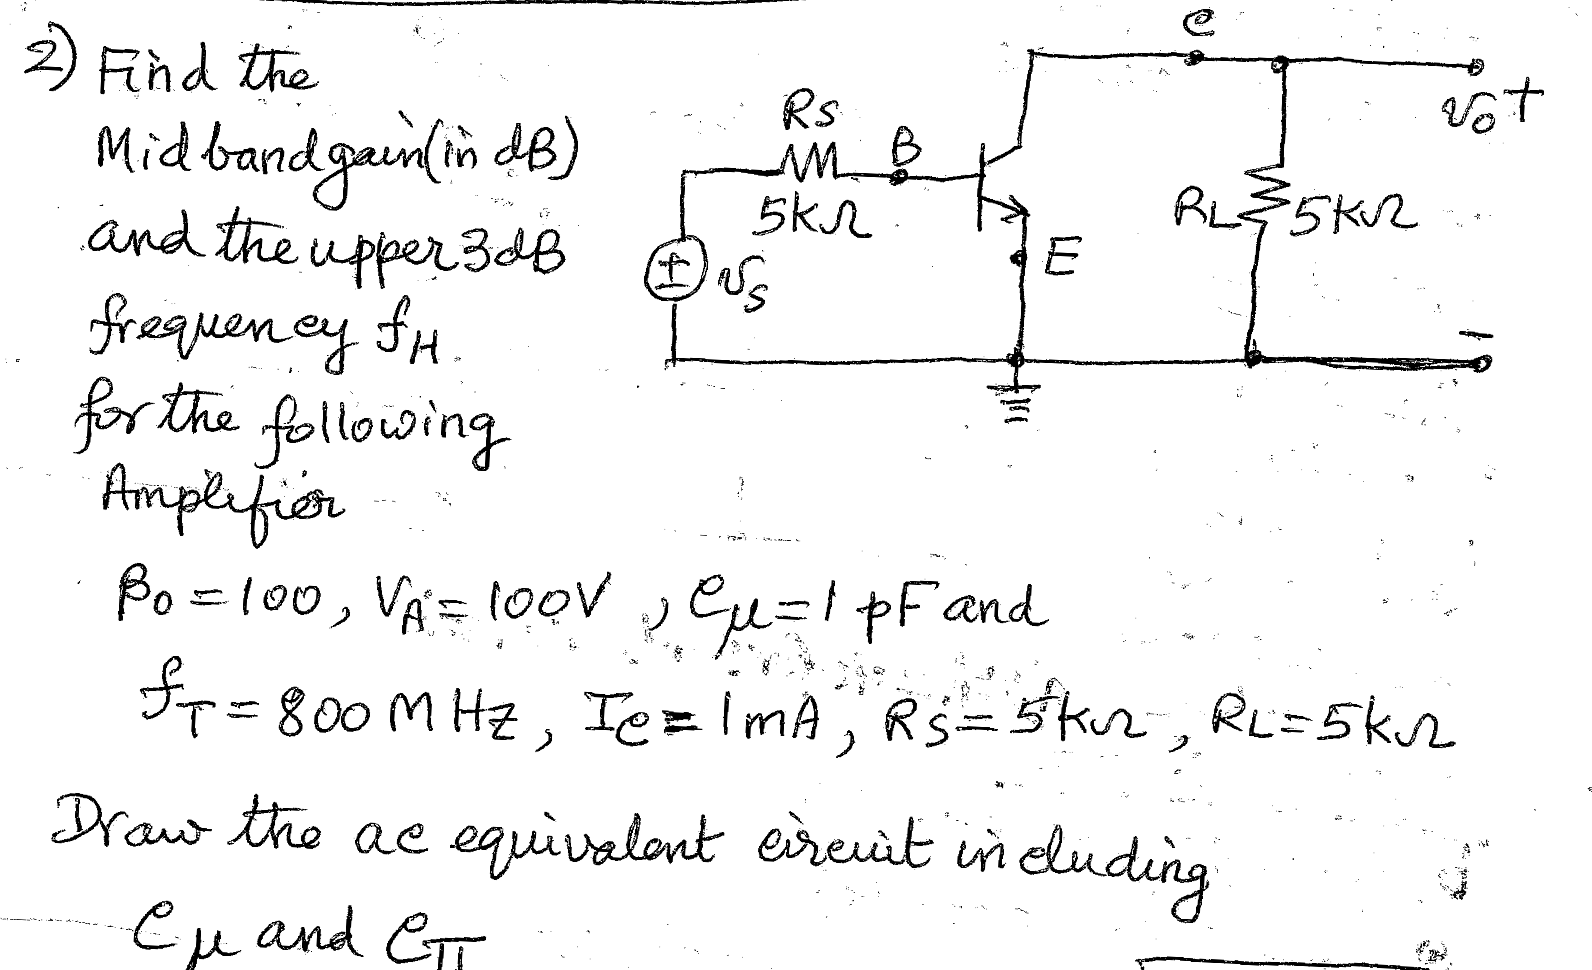 2) Find the
Midband gain (in dB)
and the upper 3dB
frequency fH.
for the following
Amplifier
C
Rs
B
5kΩ
± vs
E
RL 5kΩ
vo +
-
β0 = 100, VA = 100V, Cμ = 1 pF and
fT = 800 MHz, Ic = 1mA, Rs = 5kΩ, RL = 5kΩ
Draw the ac equivalent circuit including
Cμ and Cπ